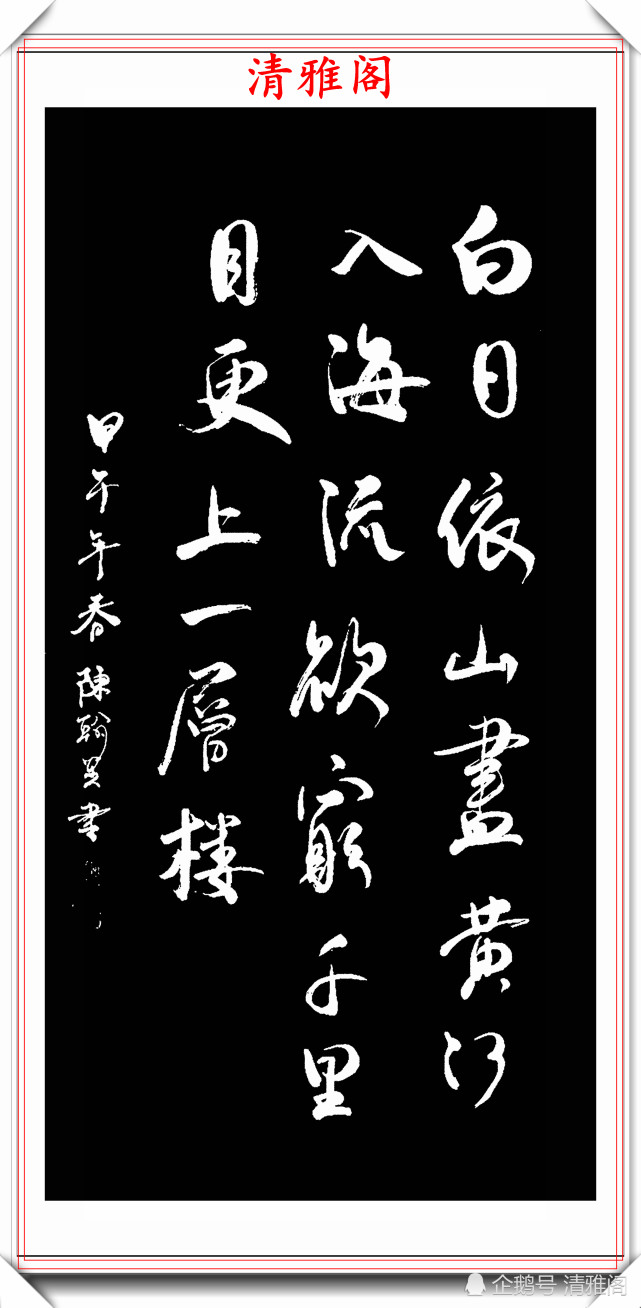 清雅阁
白日依山盡黄河
入海流欲窮千里
目更上一層楼
甲午年春陳翰昱書
企鹅号 清雅阁